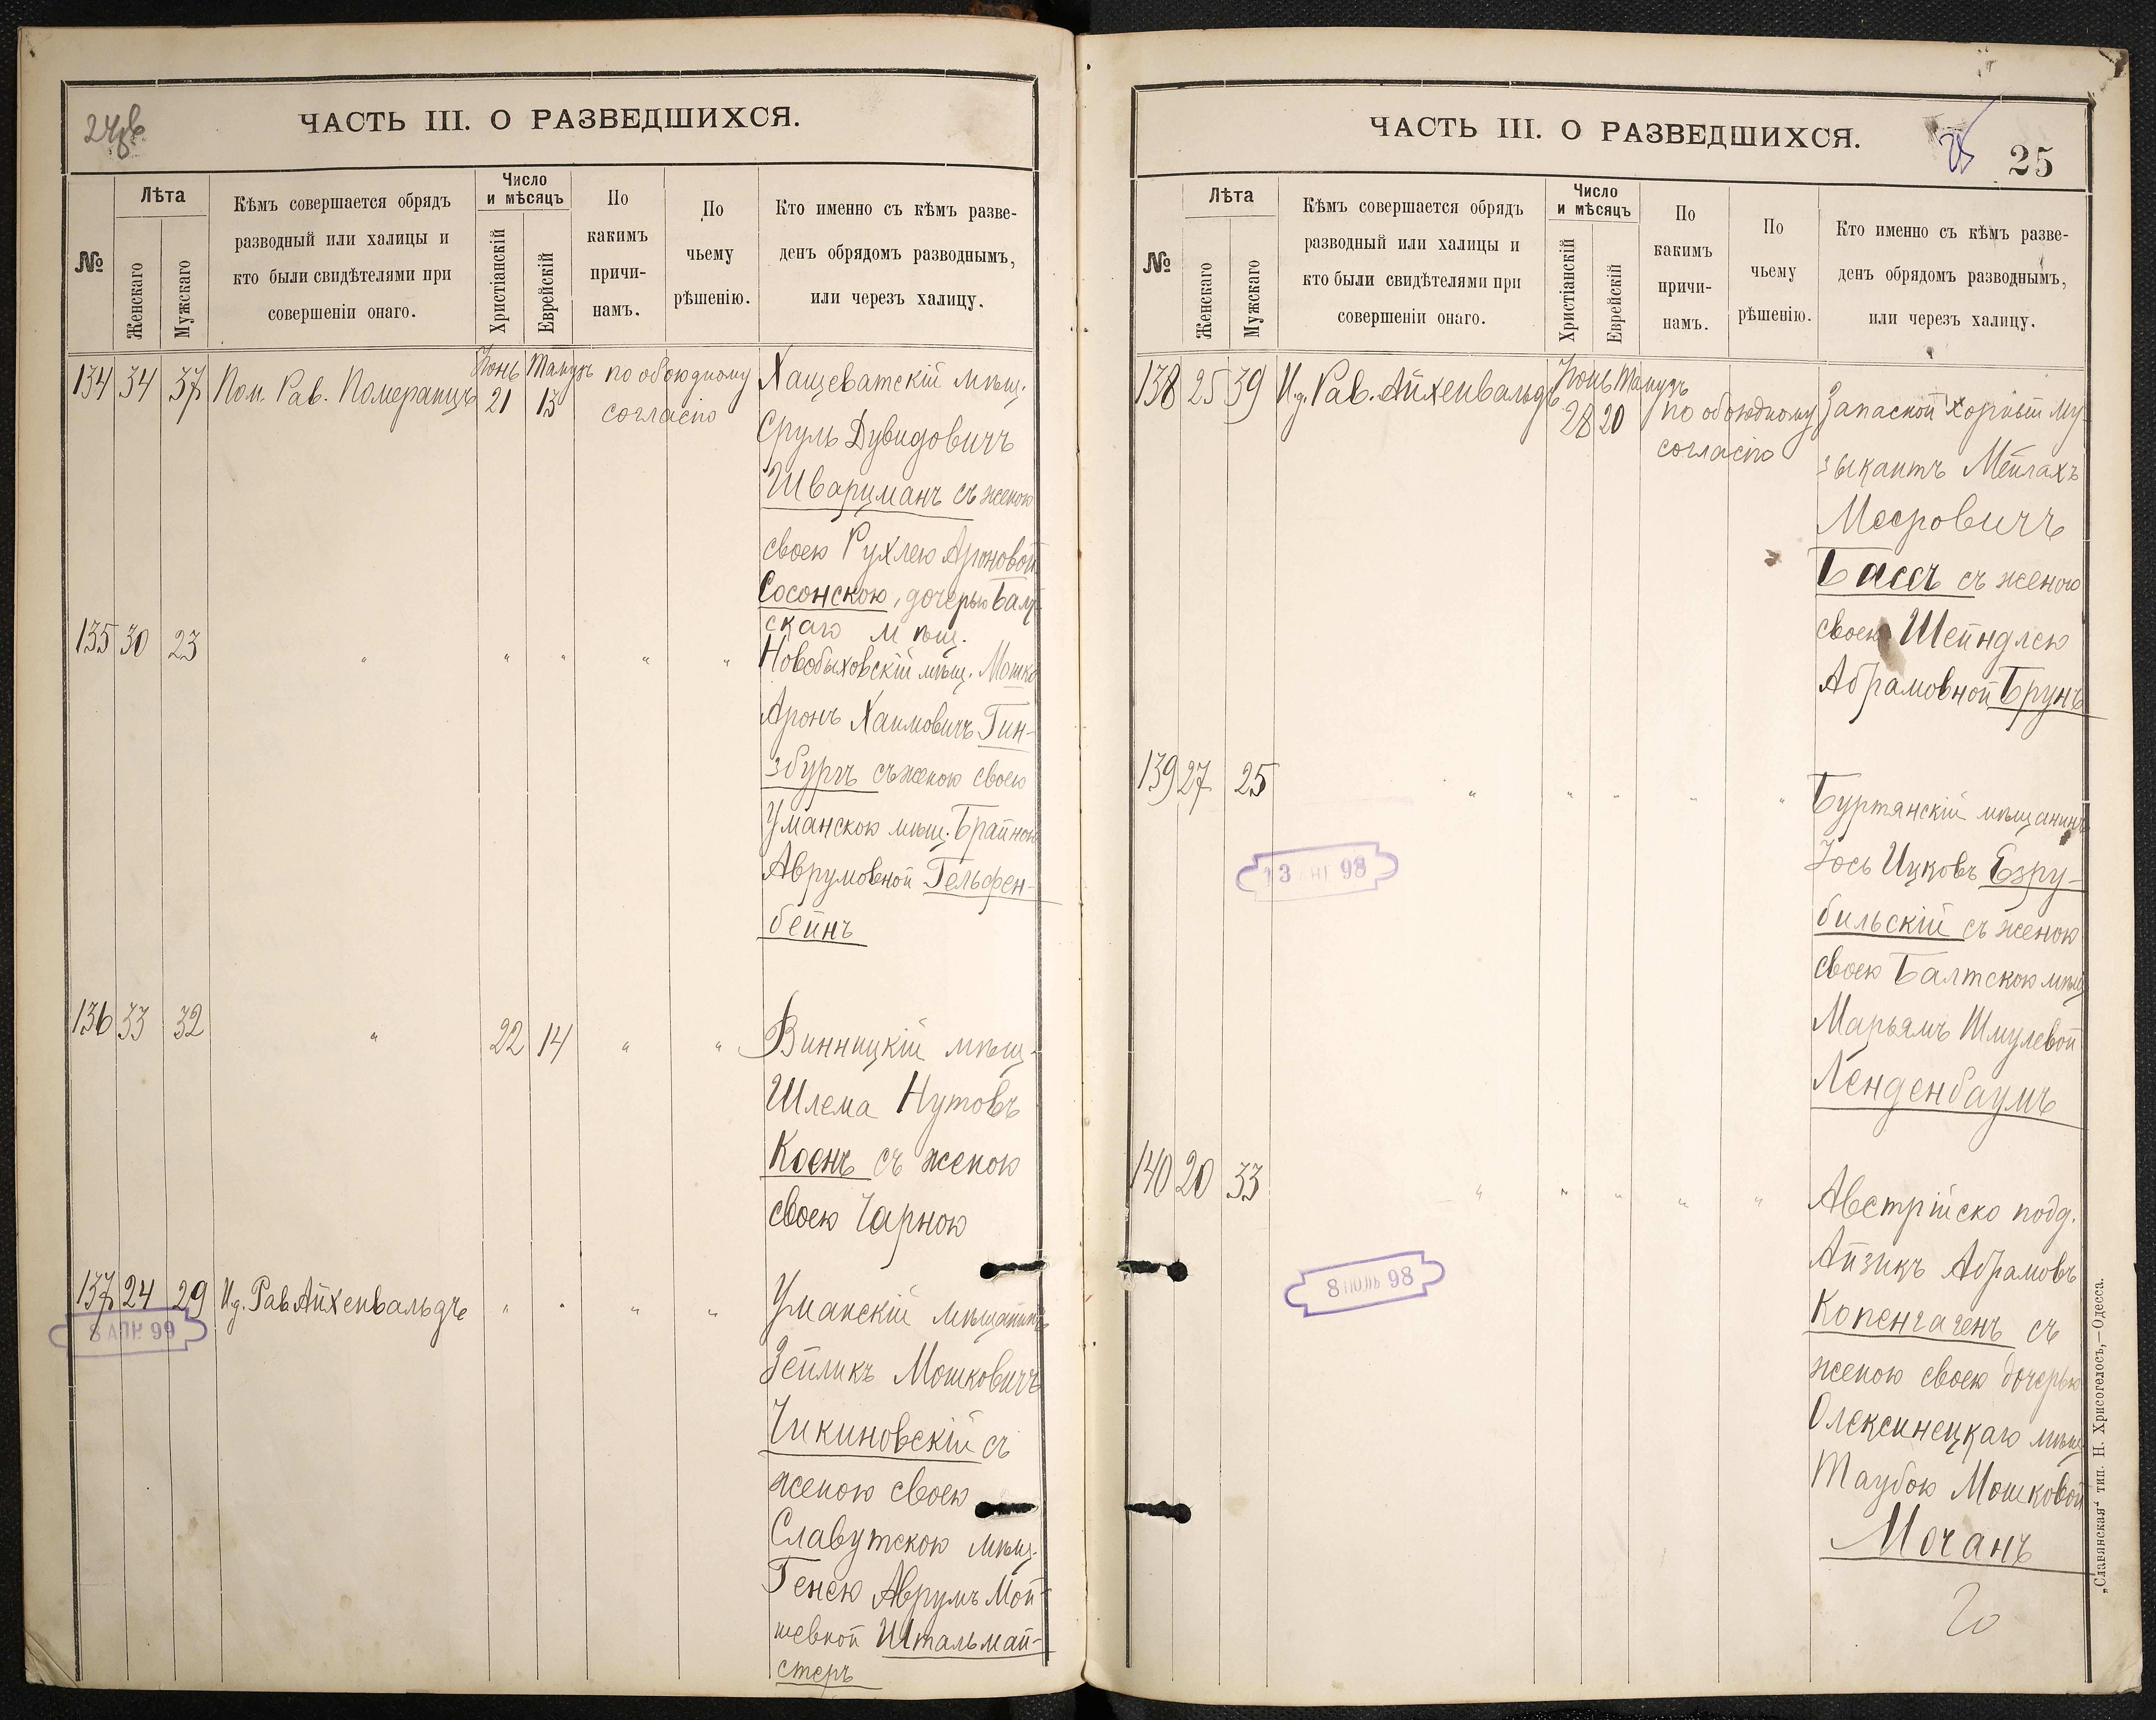 24об.
ЧАСТЬ III. О РАЗВЕДШИХСЯ.
№
Лѣта
Женскаго
Мужскаго
Кѣмъ совершается обрядъ
разводный или халицы и
кто были свидѣтелями при
совершеніи онаго.
Число
и мѣсяцъ
Христіанскій
Еврейскій
По
какимъ
причи-
намъ.
По
чьему
рѣшенію.
Кто именно съ кѣмъ разве-
денъ обрядомъ разводнымъ,
или черезъ халицу.
Іюнь Тамузъ
134 34 37 Пом. Рав. Померанцъ 21 13 по обоюдному
согласію
Хащеватскій мѣщ.
Сруль Дувидовичъ
Шварцманъ съ женою
своею Рухлею Ароновой
Сосонскою, дочерью Балт-
скаго мѣщ.
135 30 23 " " " " "
Новобыховскій мѣщ. Мошко
Аронъ Хаимовичъ Гин-
збургъ съ женою своею
Уманскою мѣщ. Брайною
Аврумовной Гельфен-
бейнъ
136 33 32 " 22 14 " "
Винницкій мѣщ.
Шлема Нутовъ
Коенъ съ женою
своею Чарною
137 24 29 И.д. Рав. Айхенвальдъ " " " "
8 АПР 99
Уманскій мѣщанинъ
Зейликъ Мошковичъ
Чикиновскій съ
женою своею
Славутскою мѣщ.
Генею Аврумъ Мой-
шевной Штальмай-
стеръ
ЧАСТЬ III. О РАЗВЕДШИХСЯ.
25
25
№
Лѣта
Женскаго
Мужскаго
Кѣмъ совершается обрядъ
разводный или халицы и
кто были свидѣтелями при
совершеніи онаго.
Число
и мѣсяцъ
Христіанскій
Еврейскій
По
какимъ
причи-
намъ.
По
чьему
рѣшенію.
Кто именно съ кѣмъ разве-
денъ обрядомъ разводнымъ,
или черезъ халицу.
Іюнь Тамузъ
138 25 39 И.д. Рав. Айхенвальдъ 28 20 по обоюдному
согласію
Запасной хорный му-
зыкантъ Мейлахъ
Мееровичъ
Бассъ съ женою
своею Шейндлею
Абрамовной Брунъ
139 27 25 " " " " "
13 98
Буртянскій мѣщанинъ
Іось Ицковъ Езру-
бильскій съ женою
своею Балтскою мѣщ
Марьямъ Шмулевой
Ленденбаумъ
140 20 33 " " " " "
8 ІЮЛЬ 98
Австрійско подд.
Айзикъ Абрамовъ
Копенгагенъ съ
женою своею дочерью
Олексинецкаго мѣщ
Таубою Мошковой
Мочанъ
„Славянская“ тип. Н. Хрисогелосъ,—Одесса.